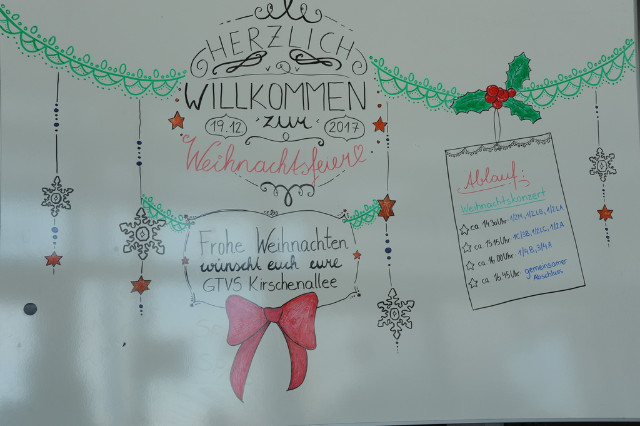 HERZLICH
WILLKOMMEN
19.12 zur 2017
Weihnachtsfeier
Frohe Weihnachten
wünscht euch eure
GTVS Kirschenallee
Ablauf:
Weihnachtskonzert
ca. 14:30Uhr
ca. 15:15Uhr
ca. 16:00Uhr 1/4B, 3/4A
ca. 16:45Uhr gemeinsamer
Abschluss